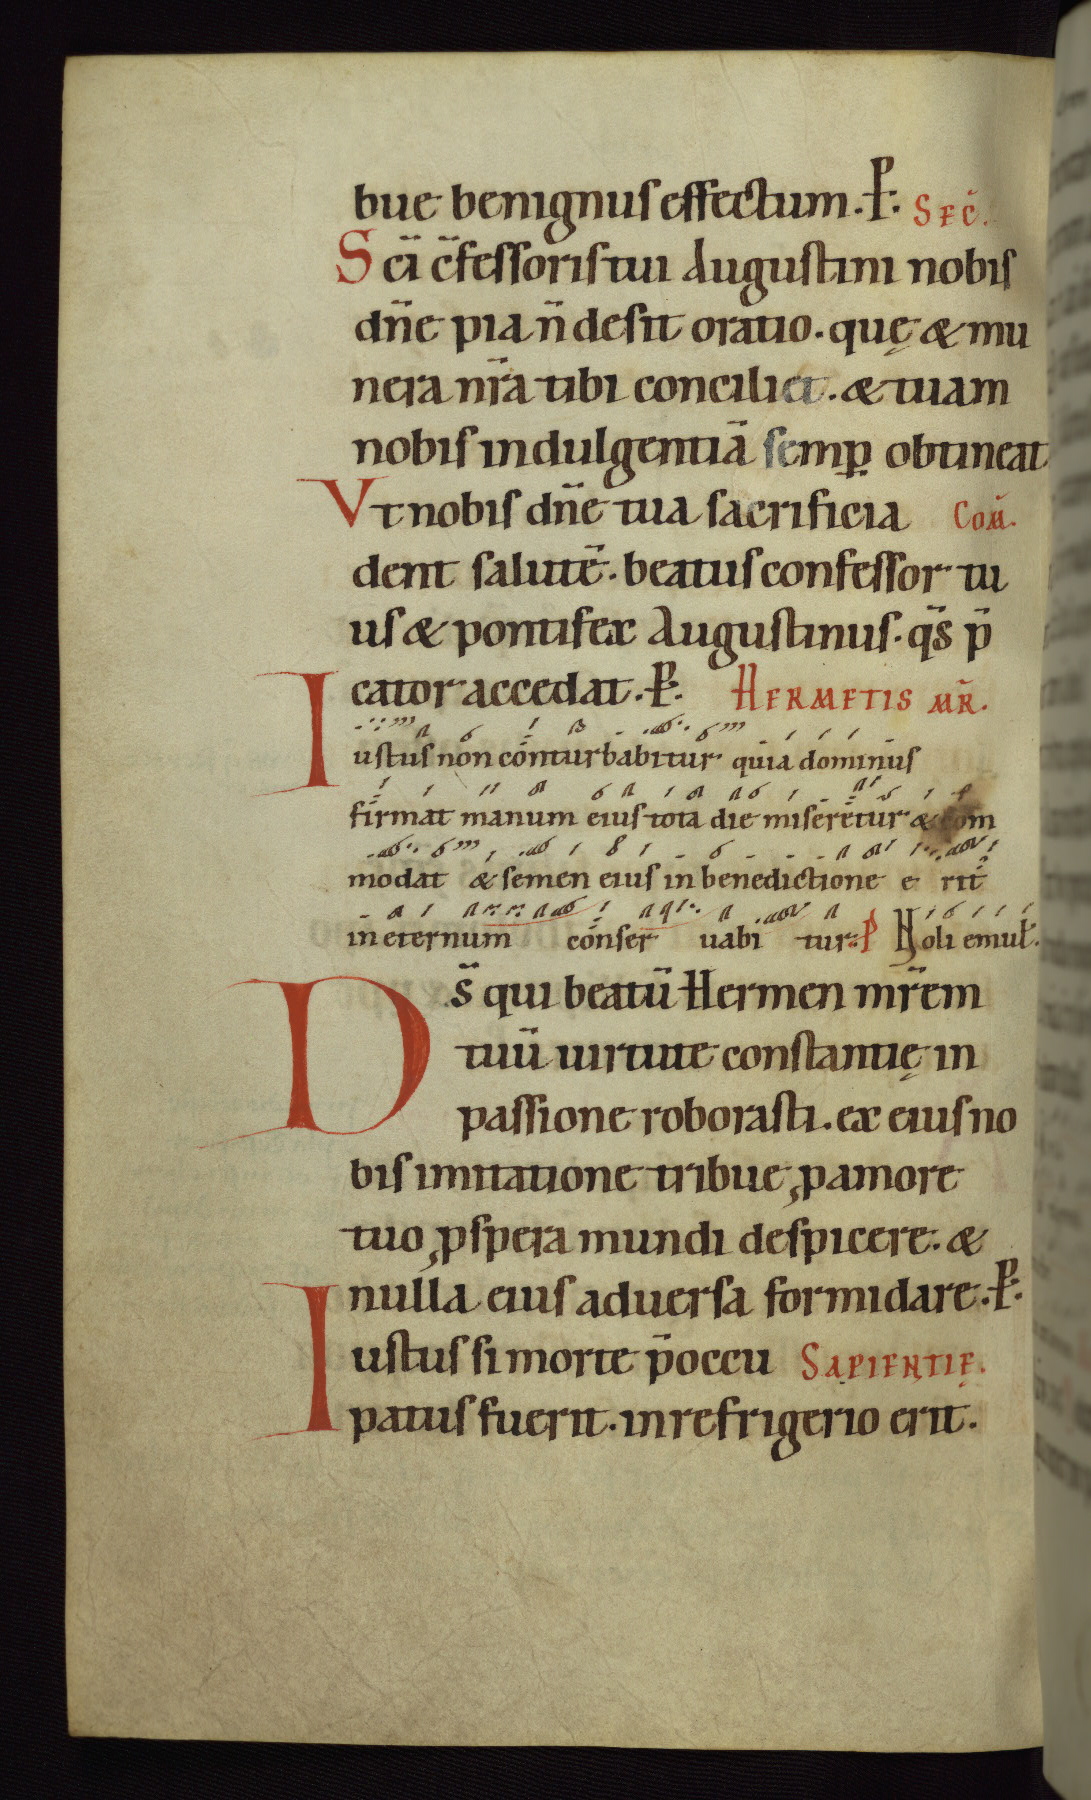 bue benignus effectum. P. SEC̄.
Sc̄i c̄fessoris tui Augustini nobis
dn̄e pia n̄ desit oratio. quę & mu
nera nr̄a tibi conciliet. & tuam
nobis indulgentiā semp̱ obtineat
Vt nobis dn̄e tua sacrificia COM̄.
dent salutē. beatus confessor tu
us & pontifex Augustinus. qs̄ p̄
cator accedat. P. HERMETIS MR̄.
Iustus non conturbabitur quia dominus
firmat manum eius tota die miseretur & com
modat & semen eius in benedictione e rit
in eternum conser uabi tur: P Noli emul.
Ds̄ qui beatū Hermen mr̄em
tuū uirtute constantię in
passione roborasti. ex eius no
bis imitatione tribue, ꝓ amore
tuo ꝓspera mundi despicere. &
nulla eius aduersa formidare. P.
Iustus si morte p̄occu SAPIENTIĘ.
patus fuerit. in refrigerio erit.